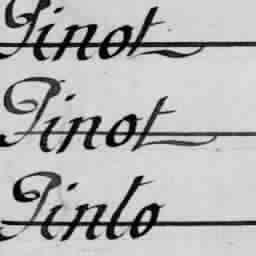 Pinot
Pinot
Pinto